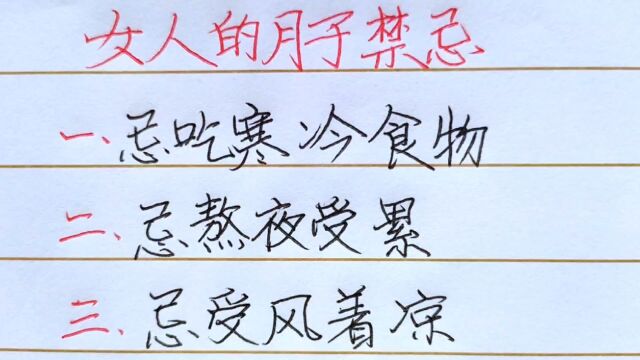 女人的月子禁忌
一、忌吃寒冷食物
二、忌熬夜受累
三、忌受风着凉